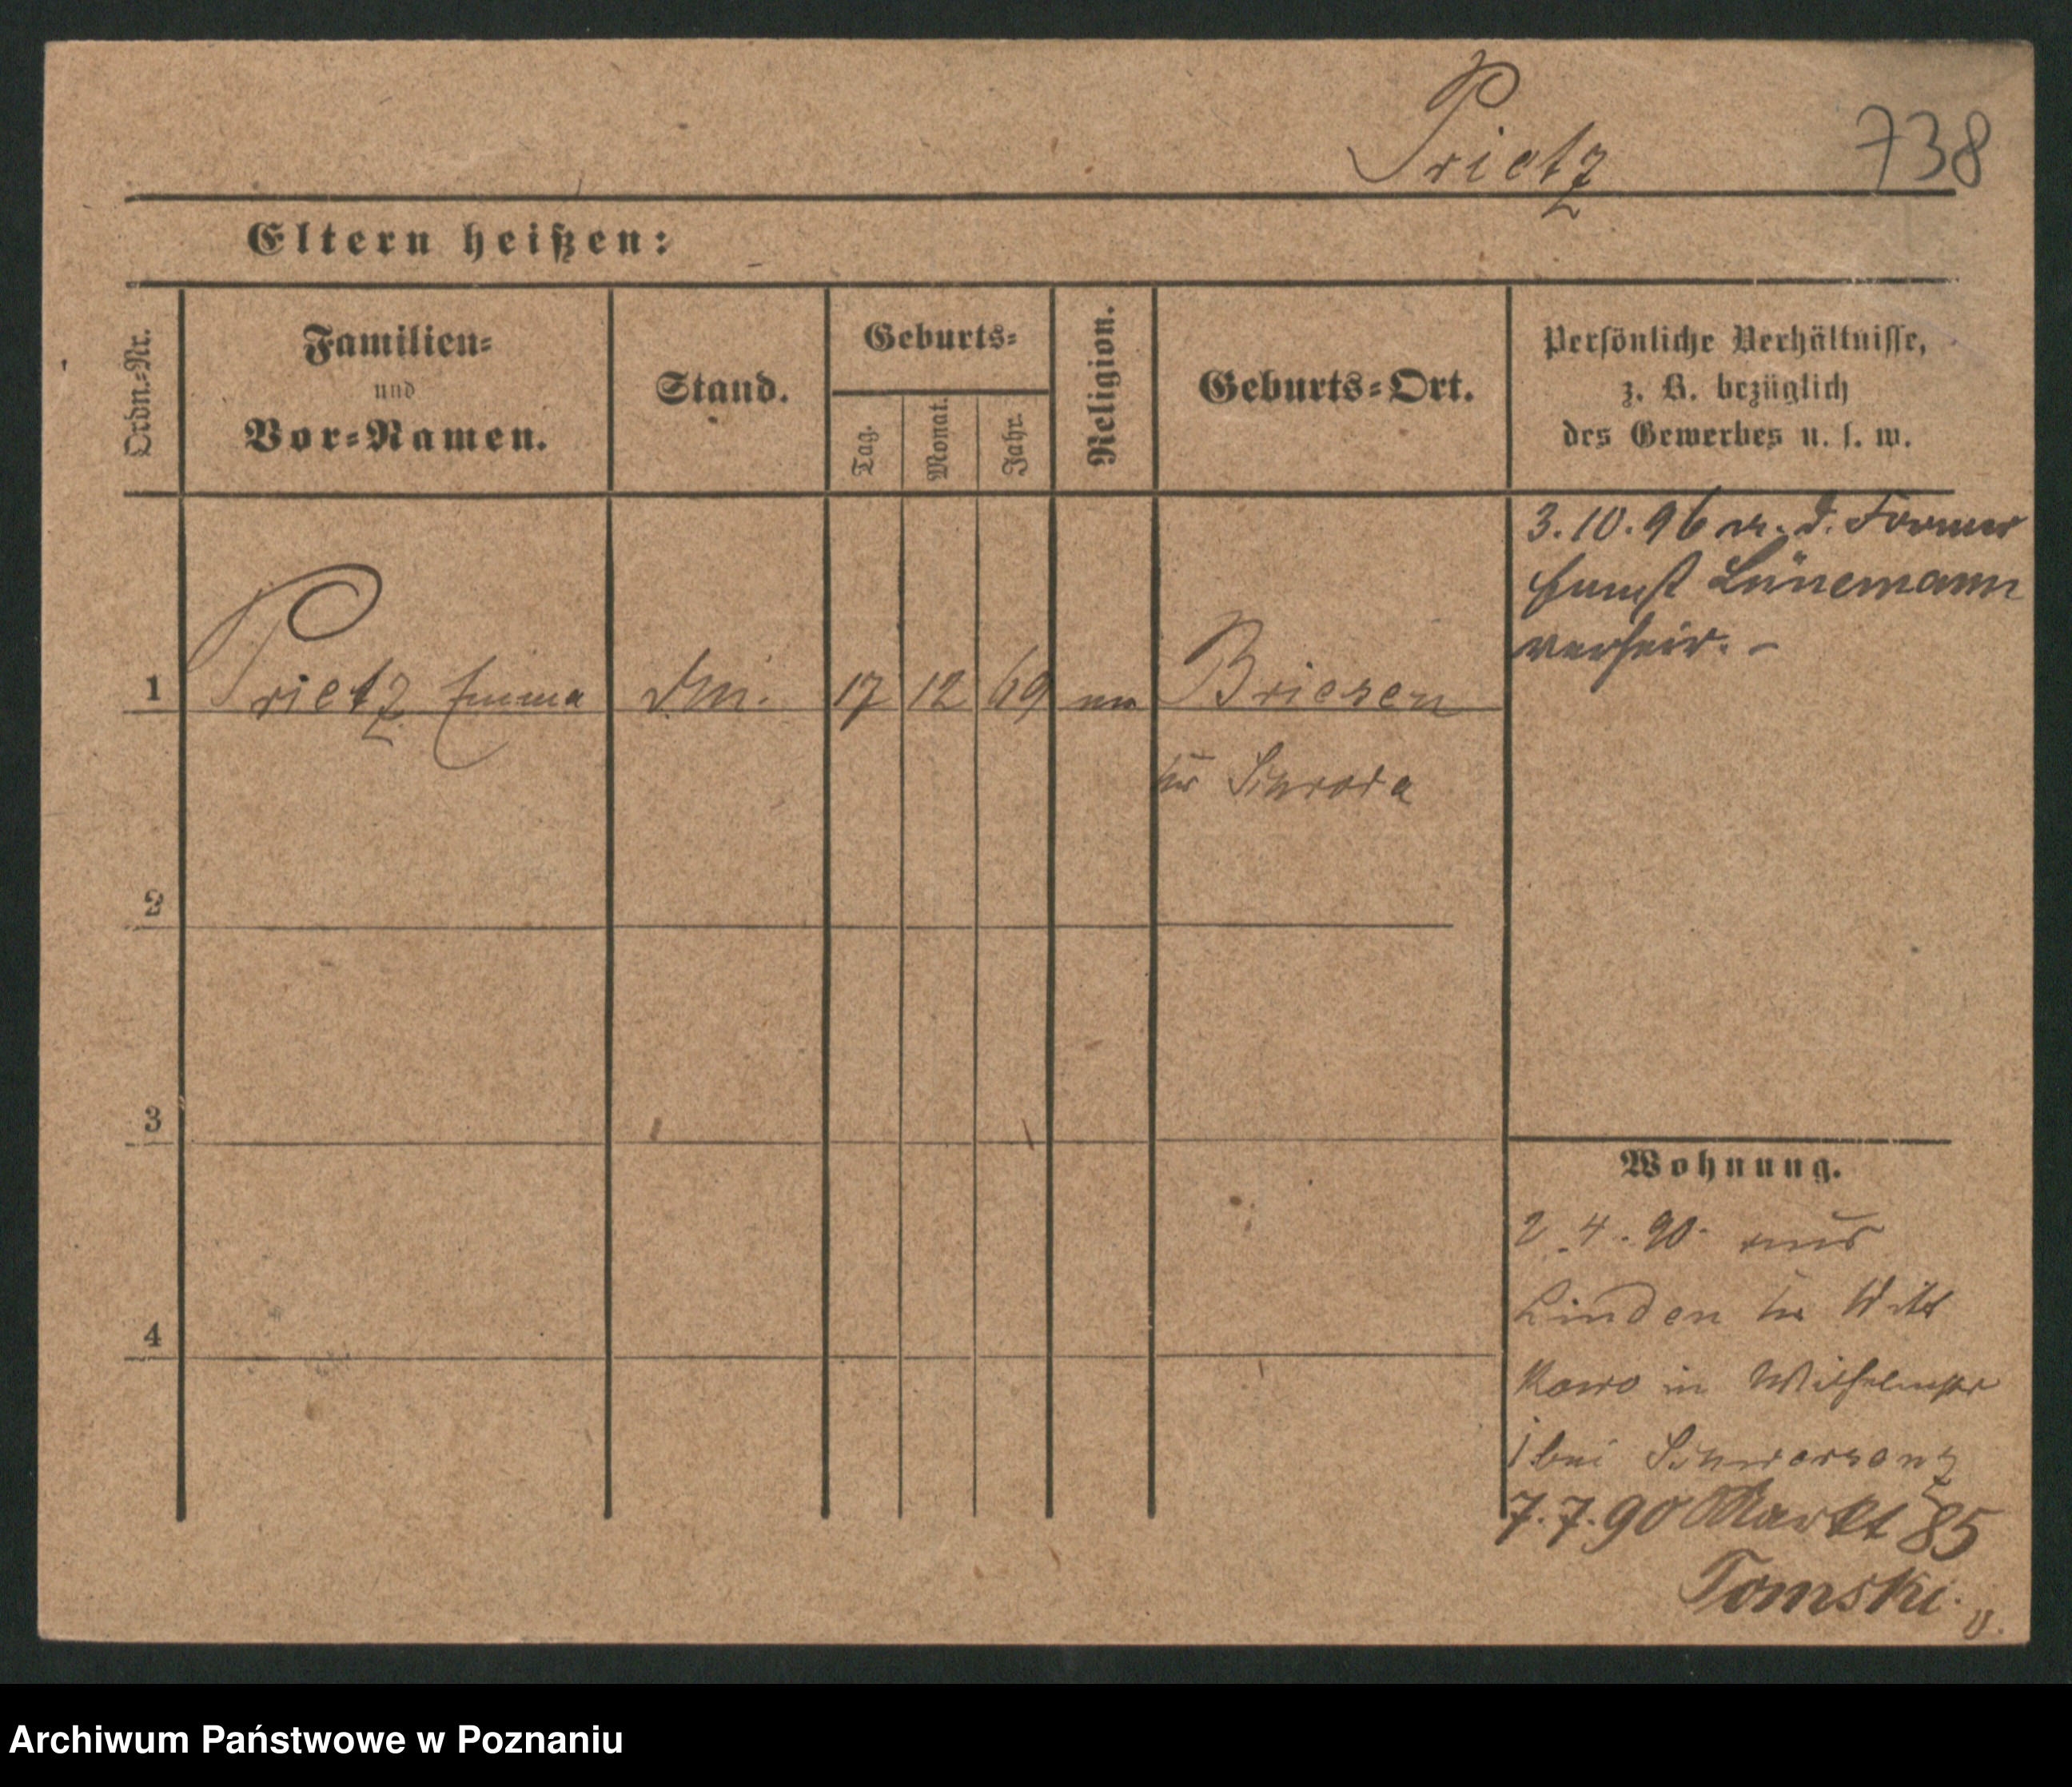 Prietz 738
Eltern heißen:
Ordn.-Nr.
Familien-
und
Vor-Namen.
Stand.
Geburts-
Tag.
Monat.
Jahr.
Religion.
Geburts-Ort.
Persönliche Verhältnisse,
z. B. bezüglich
des Gewerbes u. s. w.
1 Prietz Emma 17 12 69 Briesen
Kr Schroda
3.10.96 m. d. Former
Ernst Lünemann
verheir. -
2
3
4
Wohnung.
2.4.90. aus
Linden Kr Wit
kowo in Wilhelmstr
1 bei Schwersenz
7.7.90 Markt 85
Tomski.
Archiwum Państwowe w Poznaniu